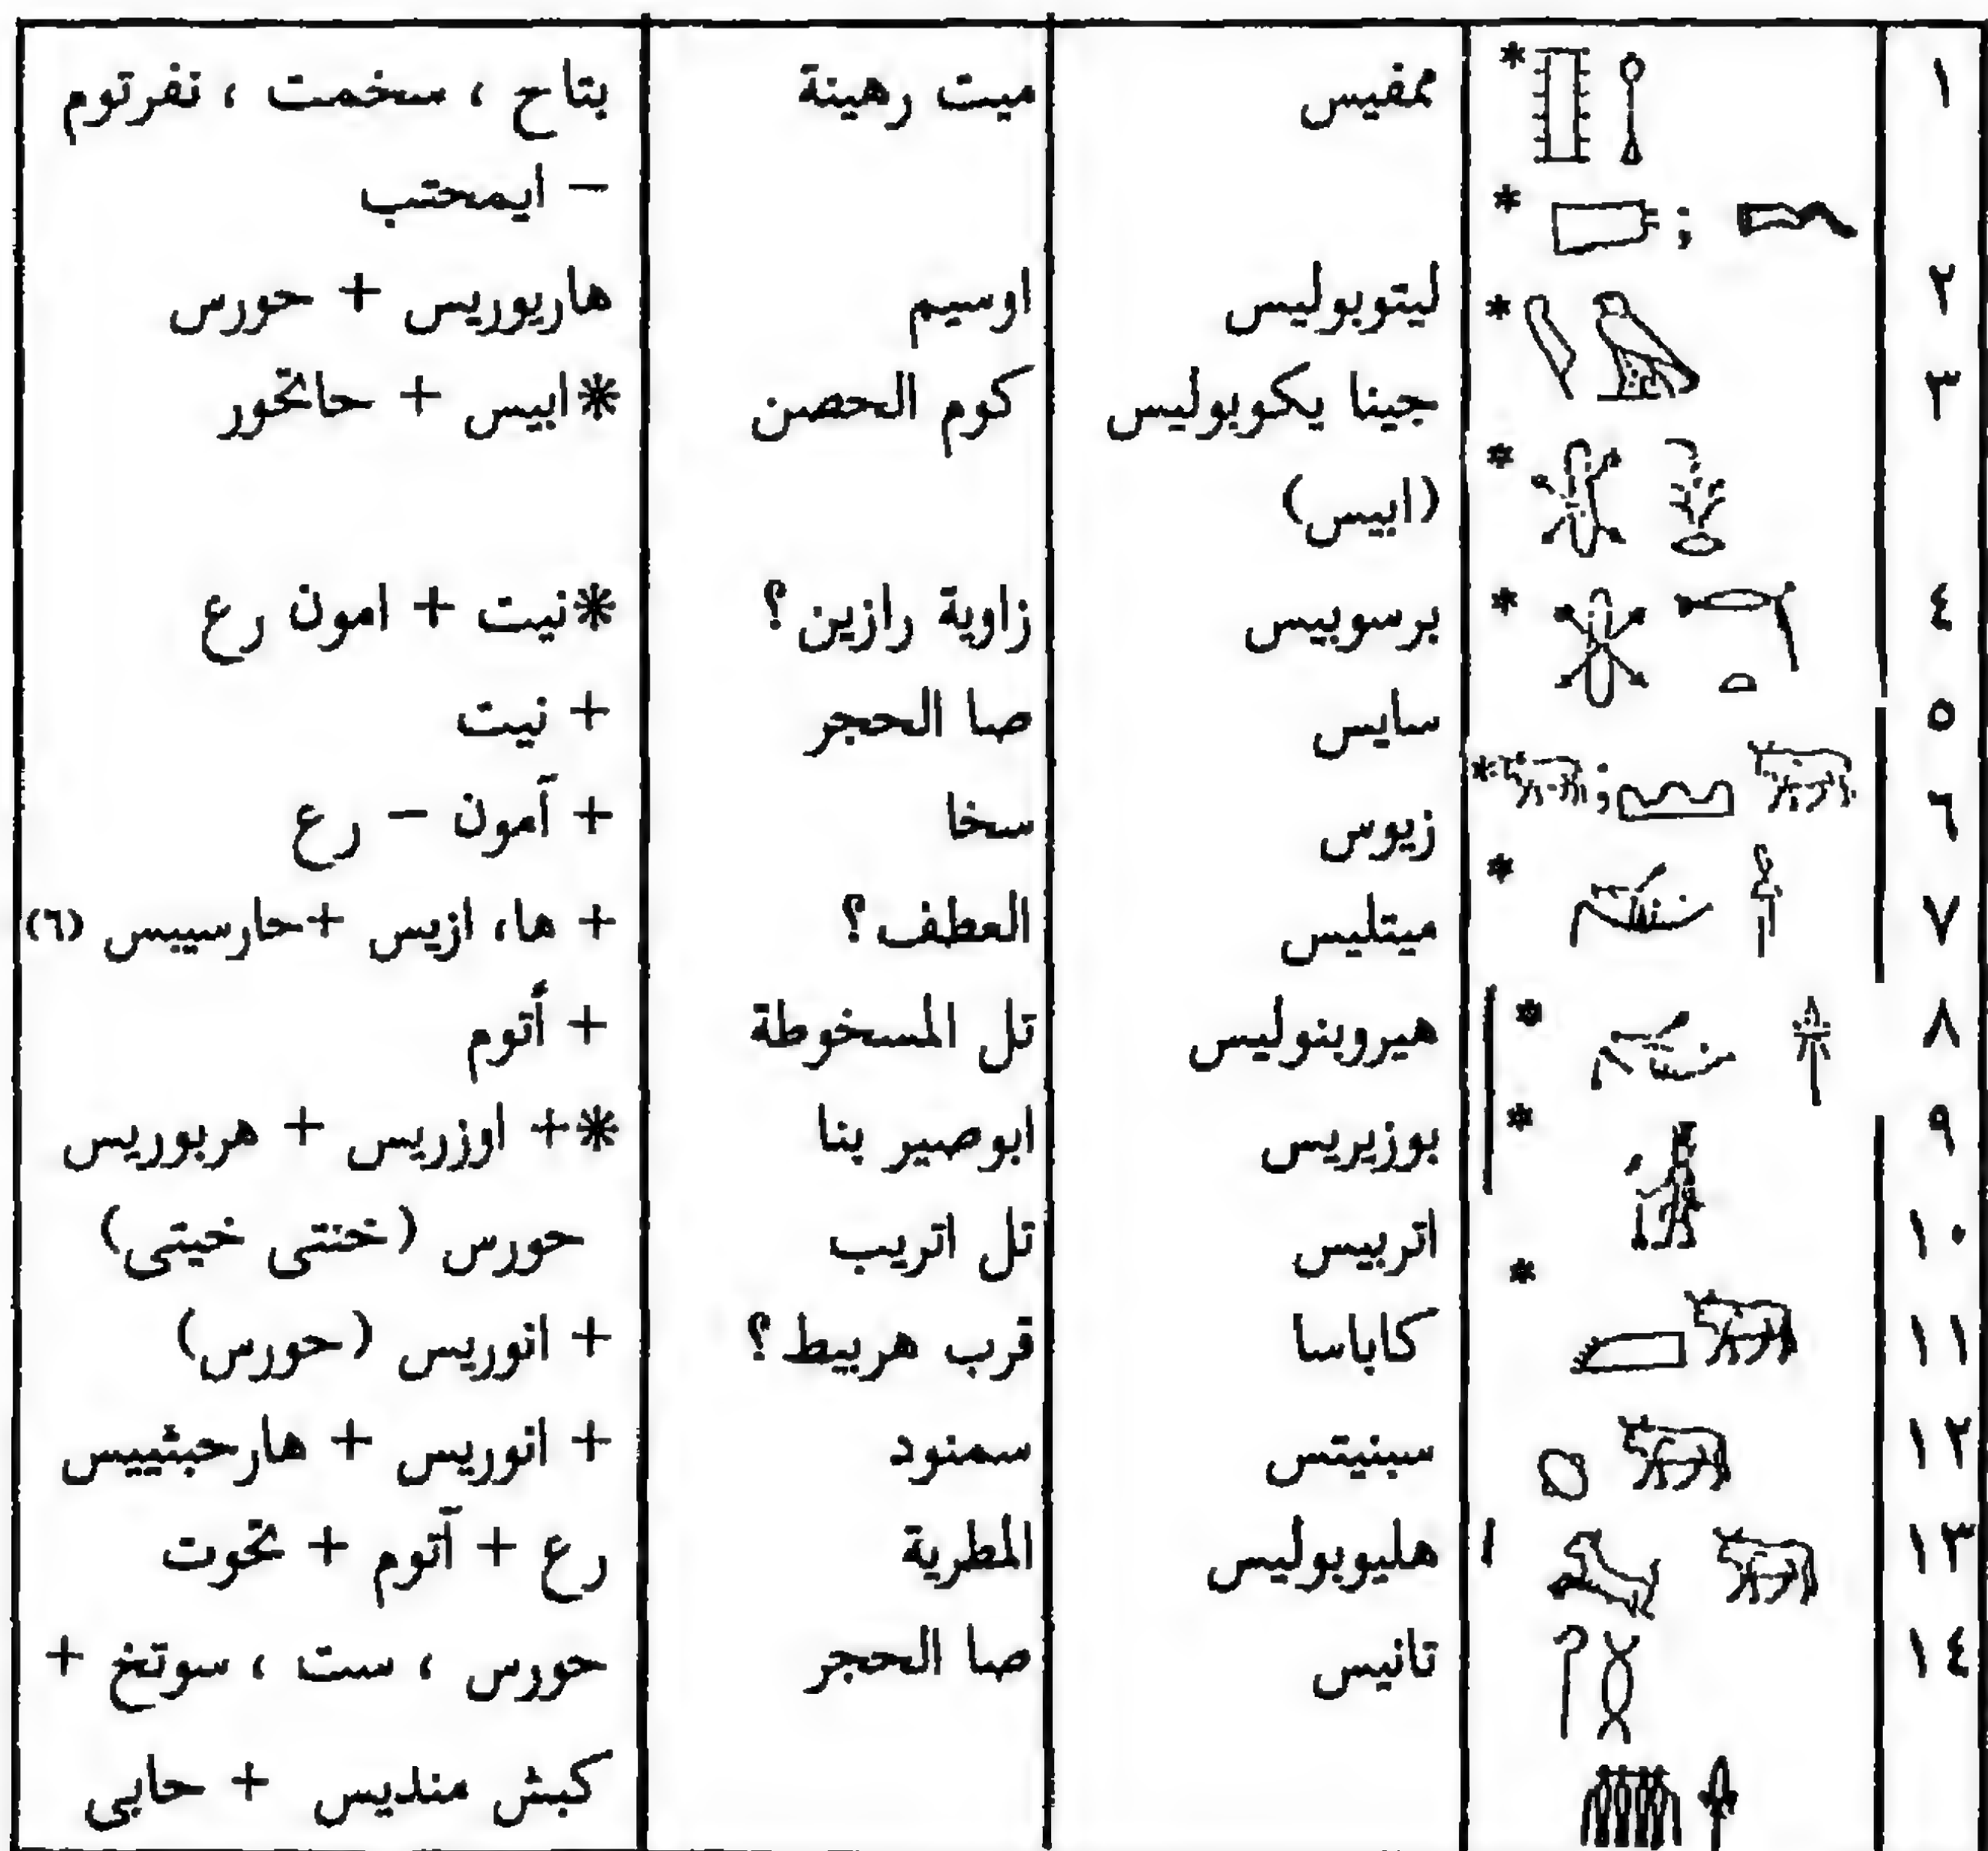 ١ ممفيس ميت رهينة بتاح ، سخمت ، نفرتوم
– ايمحتب
٢ ليتوبوليس اوسيم هاريوريس + حورس
٣ جينا يكوبوليس كوم الحصن *ابيس + حاتحور
(ابيس)
٤ برسوبيس زاوية رازين؟ *نيت + امون رع
٥ سايس صا الحجر + نيت
٦ زيوس سخا + آمون – رع
٧ ميتليس العطف؟ + ها، ازيس +حارسييس (٦)
٨ هيروبنوليس تل المسخوطة + أتوم
٩ بوزيريس ابوصير بنا *+ اوزريس + هربوريس
١٠ اتربيس تل اتريب حورس (خنتى خيتى)
١١ كاباسا قرب هربيط؟ + انوريس (حورس)
١٢ سبنيتس سمنود + انوريس + هارحبثييس
١٣ هليوبوليس المطرية رع + آتوم + تحوت
١٤ تانيس صا الحجر حورس ، ست ، سوتخ +
كبش منديس + حابى